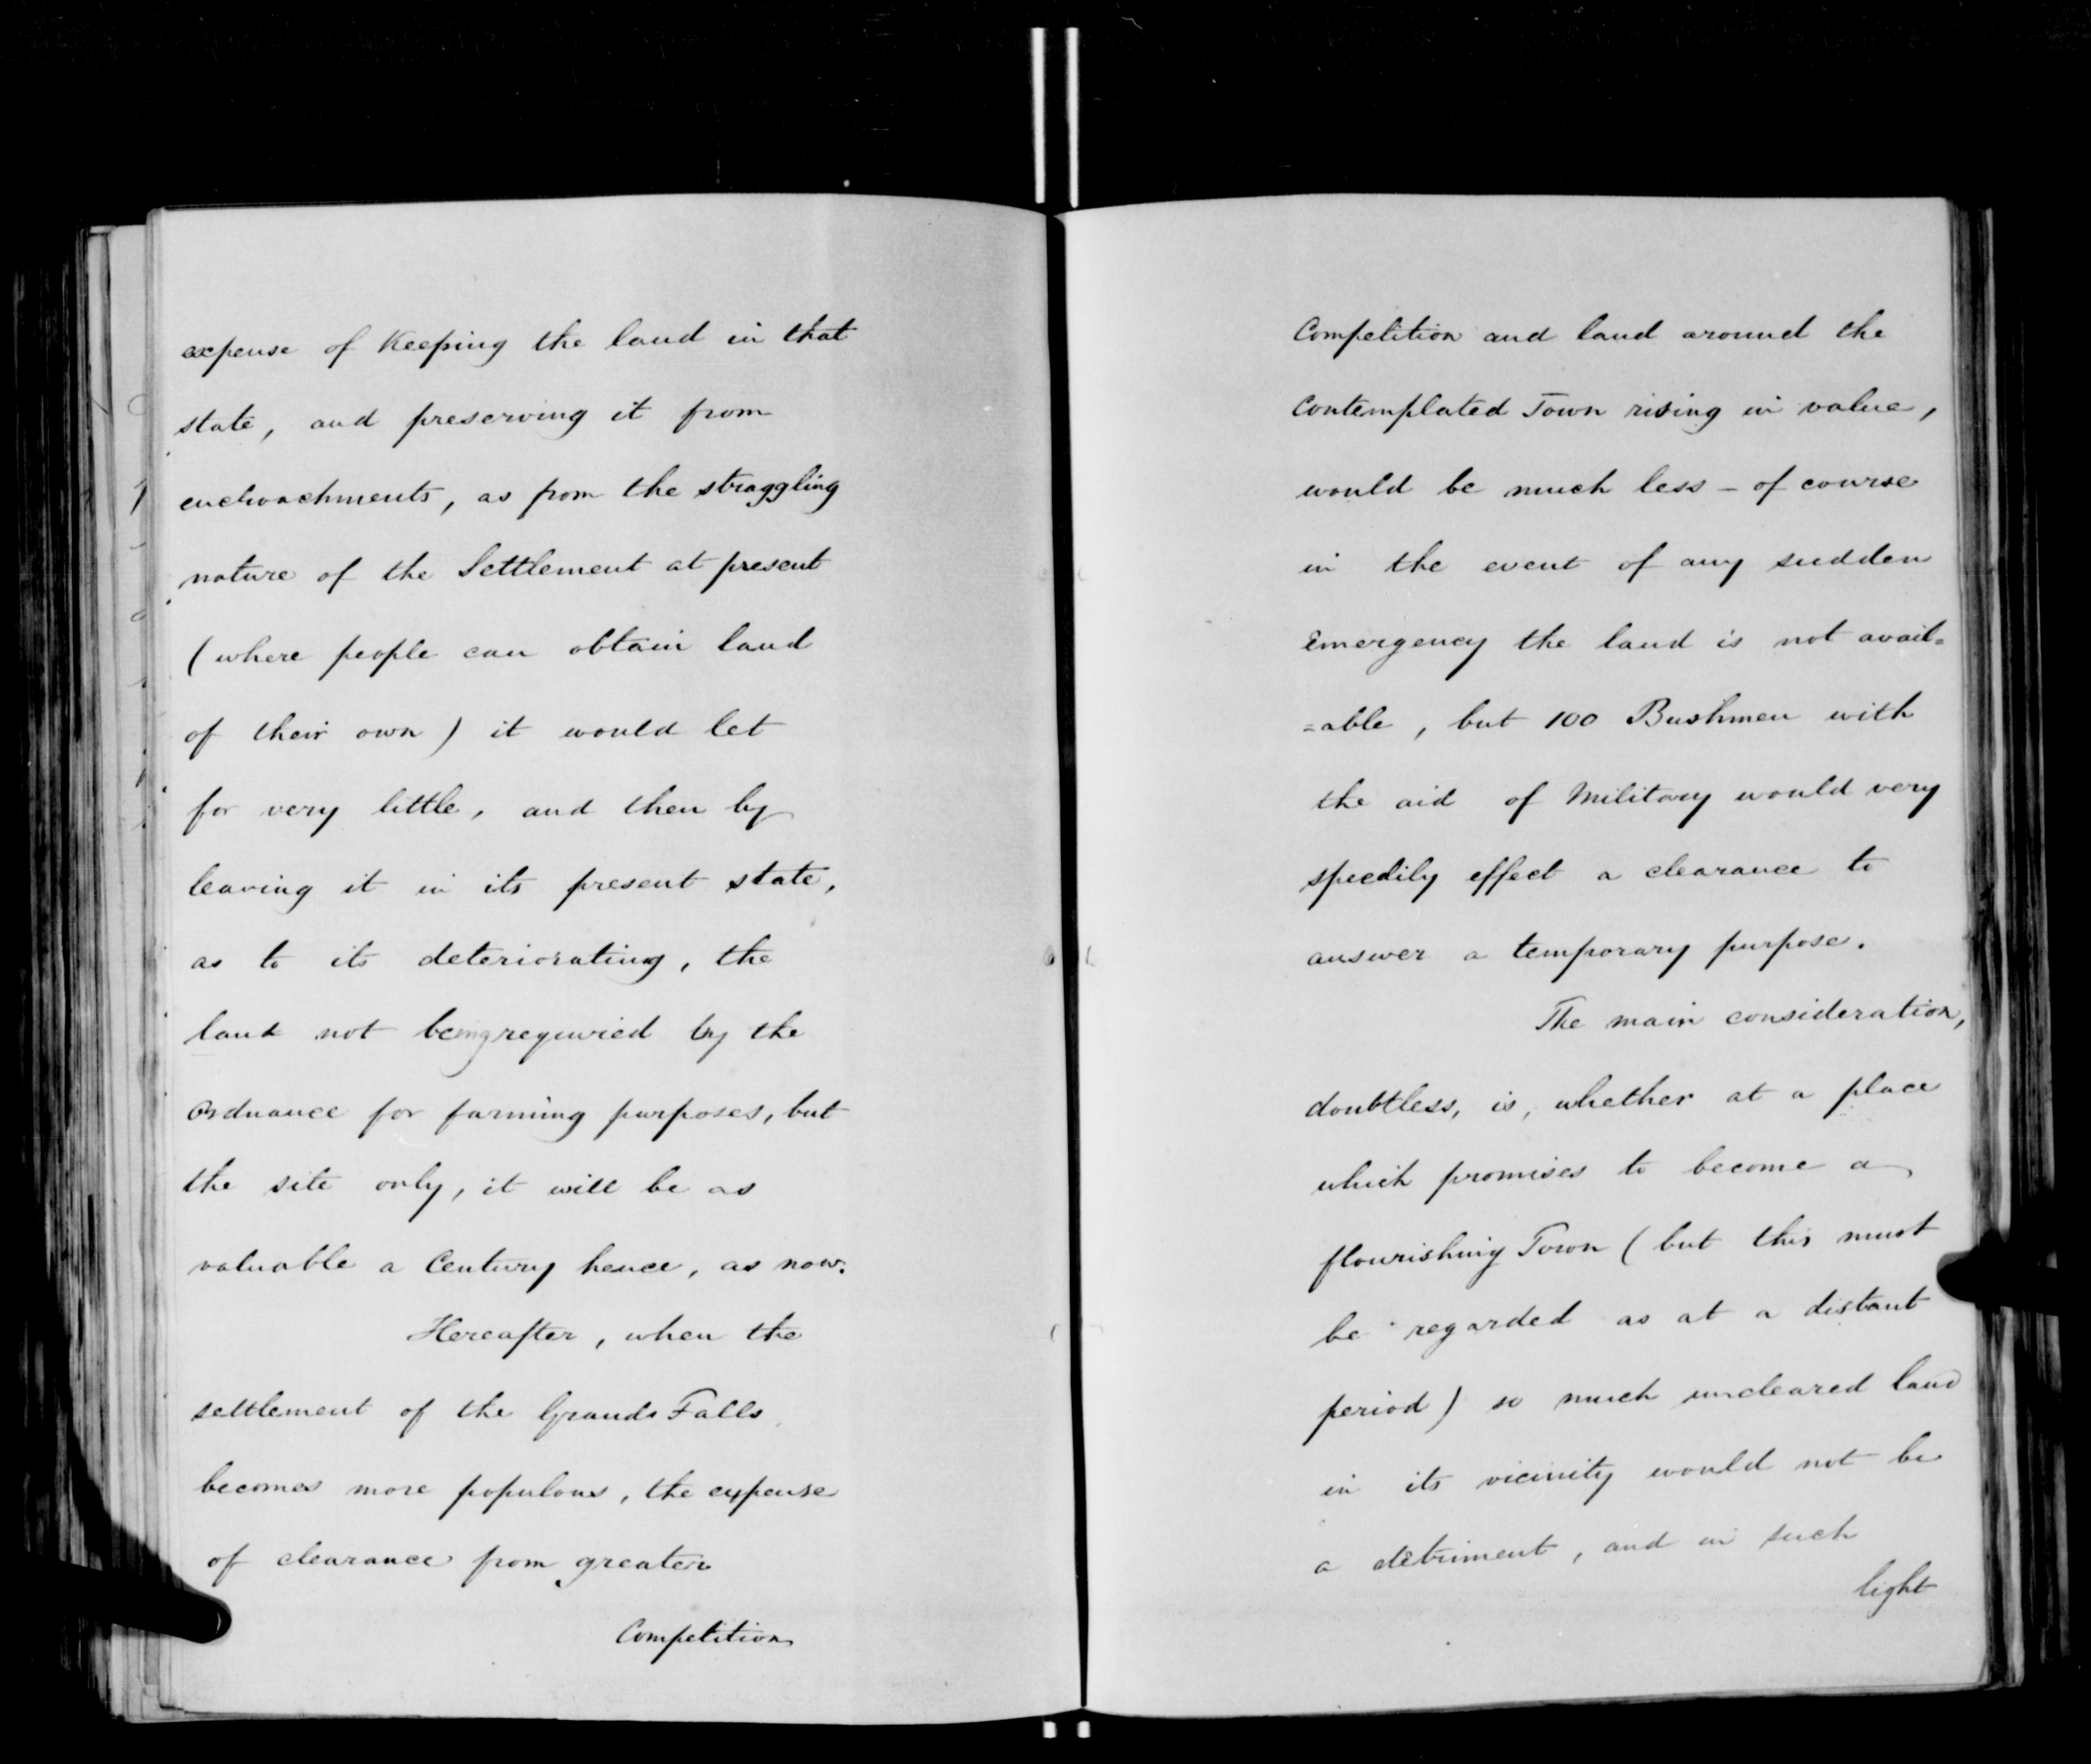 expense of Keeping the land in that
state, and preserving it from
encroachments, as from the straggling
nature of the Settlement at present
(where people can obtain land
of their own) it would let
for very little, and then by
leaving it in its present state,
as to its deteriorating, the
land not being required by the
Ordnance for farming purposes, but
the site only, it will be as
valuable a Century hence, as now.
Hereafter, when the
settlement of the Grands Falls
becomes more populous, the expense
of clearance from greater
Competition
Competition and land around the
Contemplated Town rising in value,
would be much less – of course
in the event of any sudden
Emergency the land is not avail=
=able, but 100 Bushmen with
the aid of Military would very
speedily effect a clearance to
answer a temporary purpose.
The main consideration,
doubtless, is, whether at a place
which promises to become a
flourishing Town (but this must
be regarded as at a distant
period) so much uncleared land
in its vicinity would not be
a detriment, and in such
light